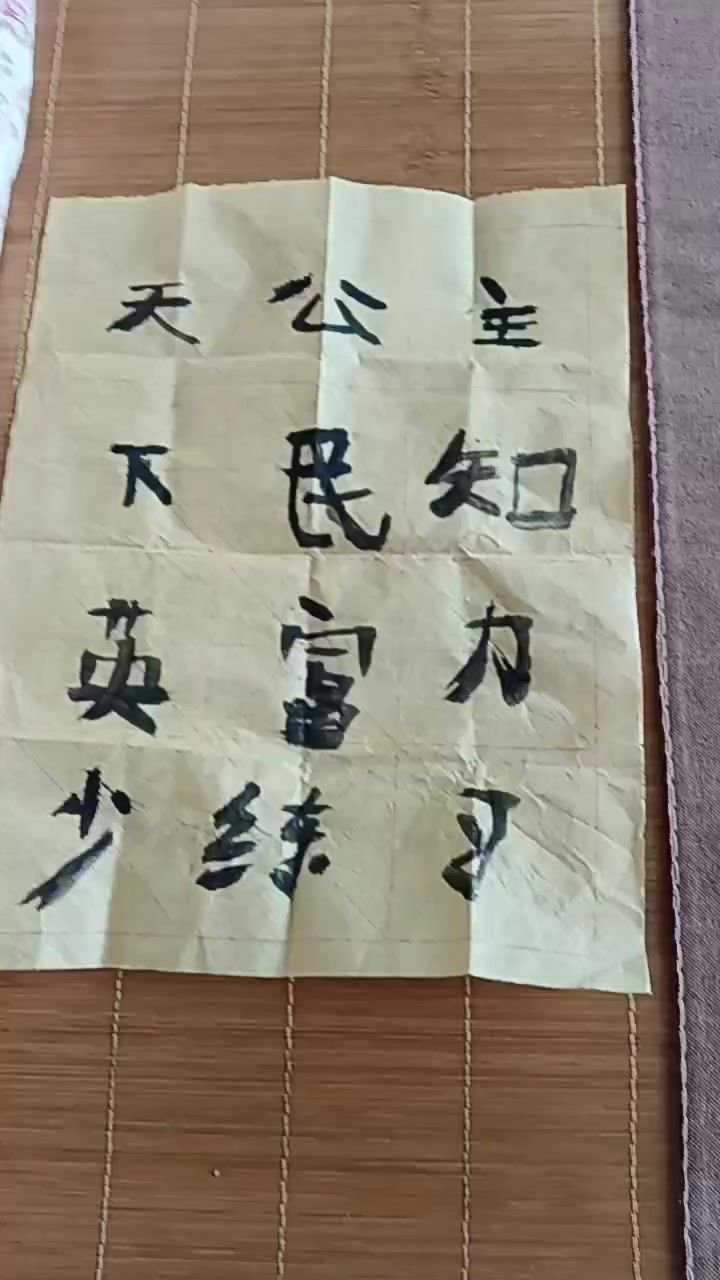 天公主
下民知
英富力
少练习